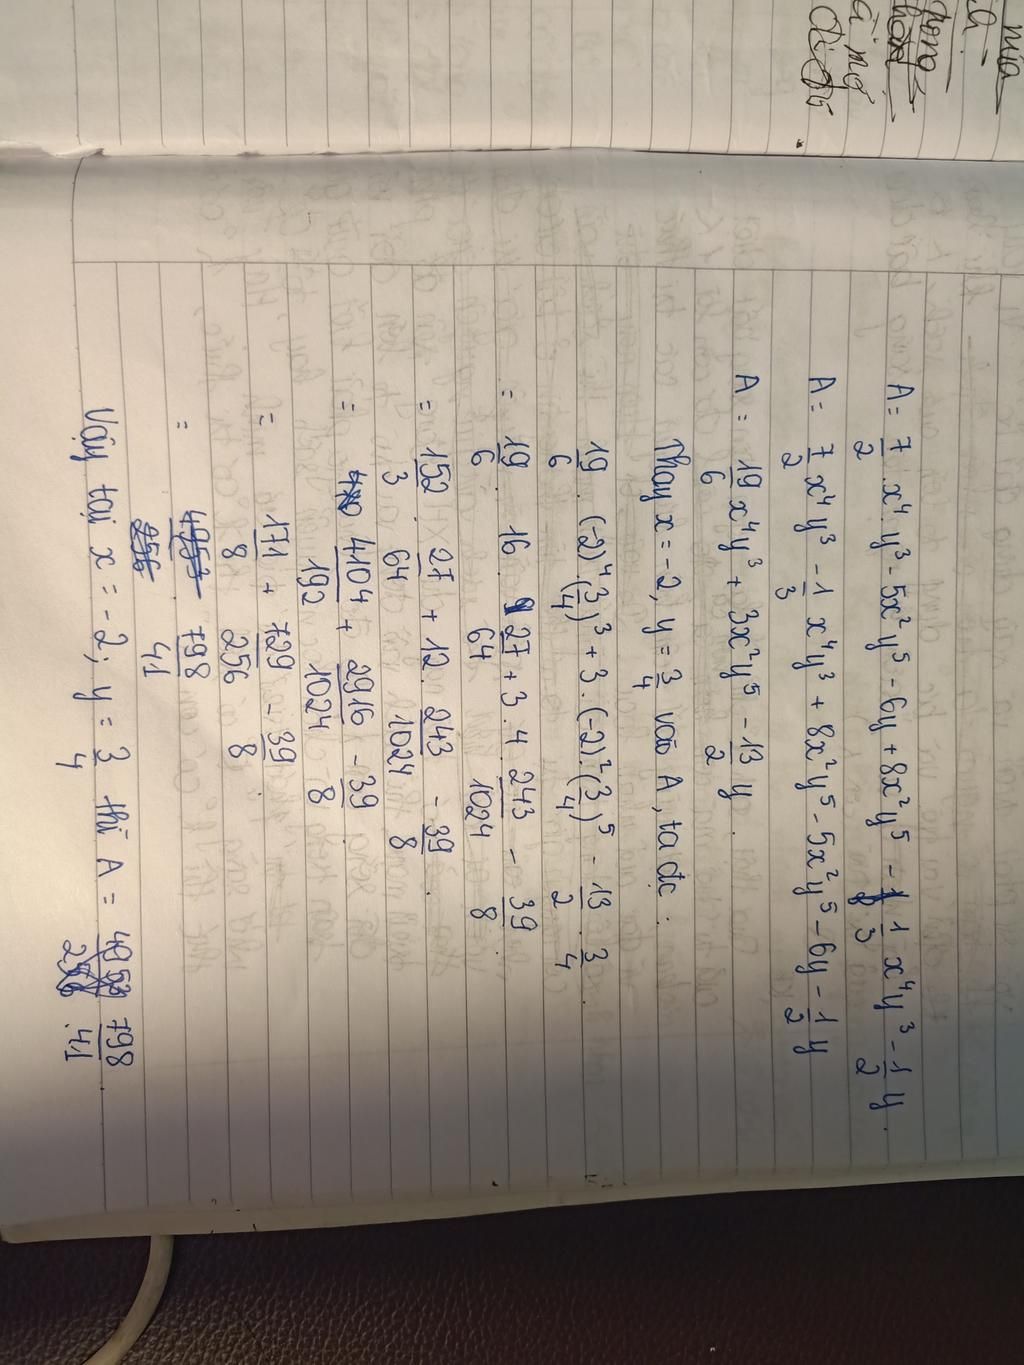 A = 7/2 x⁴y³ - 5x²y⁵ - 6y + 8x²y⁵ - 1/3 x⁴y³ - 1/2 y.
A = 7/2 x⁴y³ - 1/3 x⁴y³ + 8x²y⁵ - 5x²y⁵ - 6y - 1/2 y
A = 19/6 x⁴y³ + 3x²y⁵ - 13/2 y.
Thay x = -2, y = 3/4 vào A, ta đc :
19/6 . (-2)⁴ . (3/4)³ + 3 . (-2)² . (3/4)⁵ - 13/2 . 3/4
= 19/6 . 16 . 27/64 + 3 . 4 . 243/1024 - 39/8
= 152/3 . 27/64 + 12 . 243/1024 - 39/8 .
= 4104/192 + 2916/1024 - 39/8
= 171/8 + 729/256 - 39/8
= 4953/256 798/41
Vậy tại x = -2 ; y = 3/4 thì A = 798/41